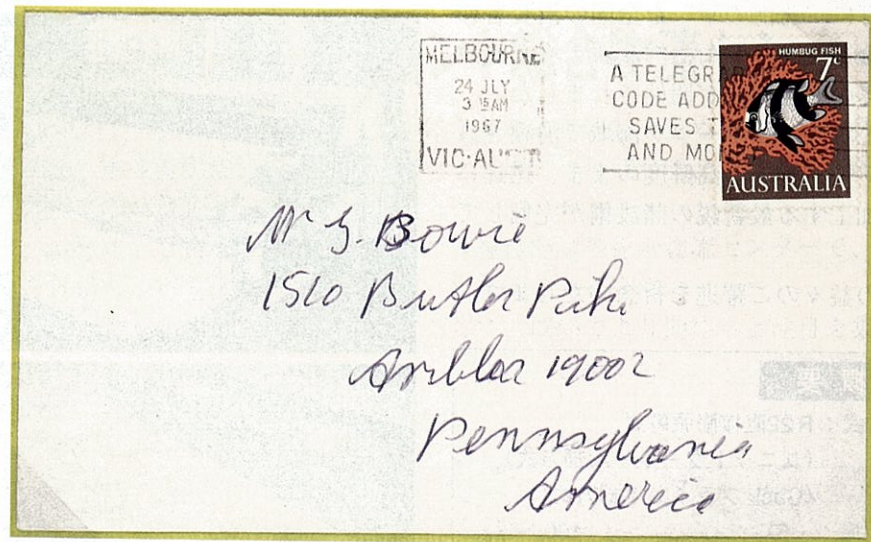 MELBOURNE
24 JLY
3 15 AM
1967
VIC·AUST
A TELEGRA
CODE ADD
SAVES T
AND MO
HUMBUG FISH
7c
AUSTRALIA
Mr G. Bowie
1510 Butler Pike
Ambler 19002
Pennsylvania
America